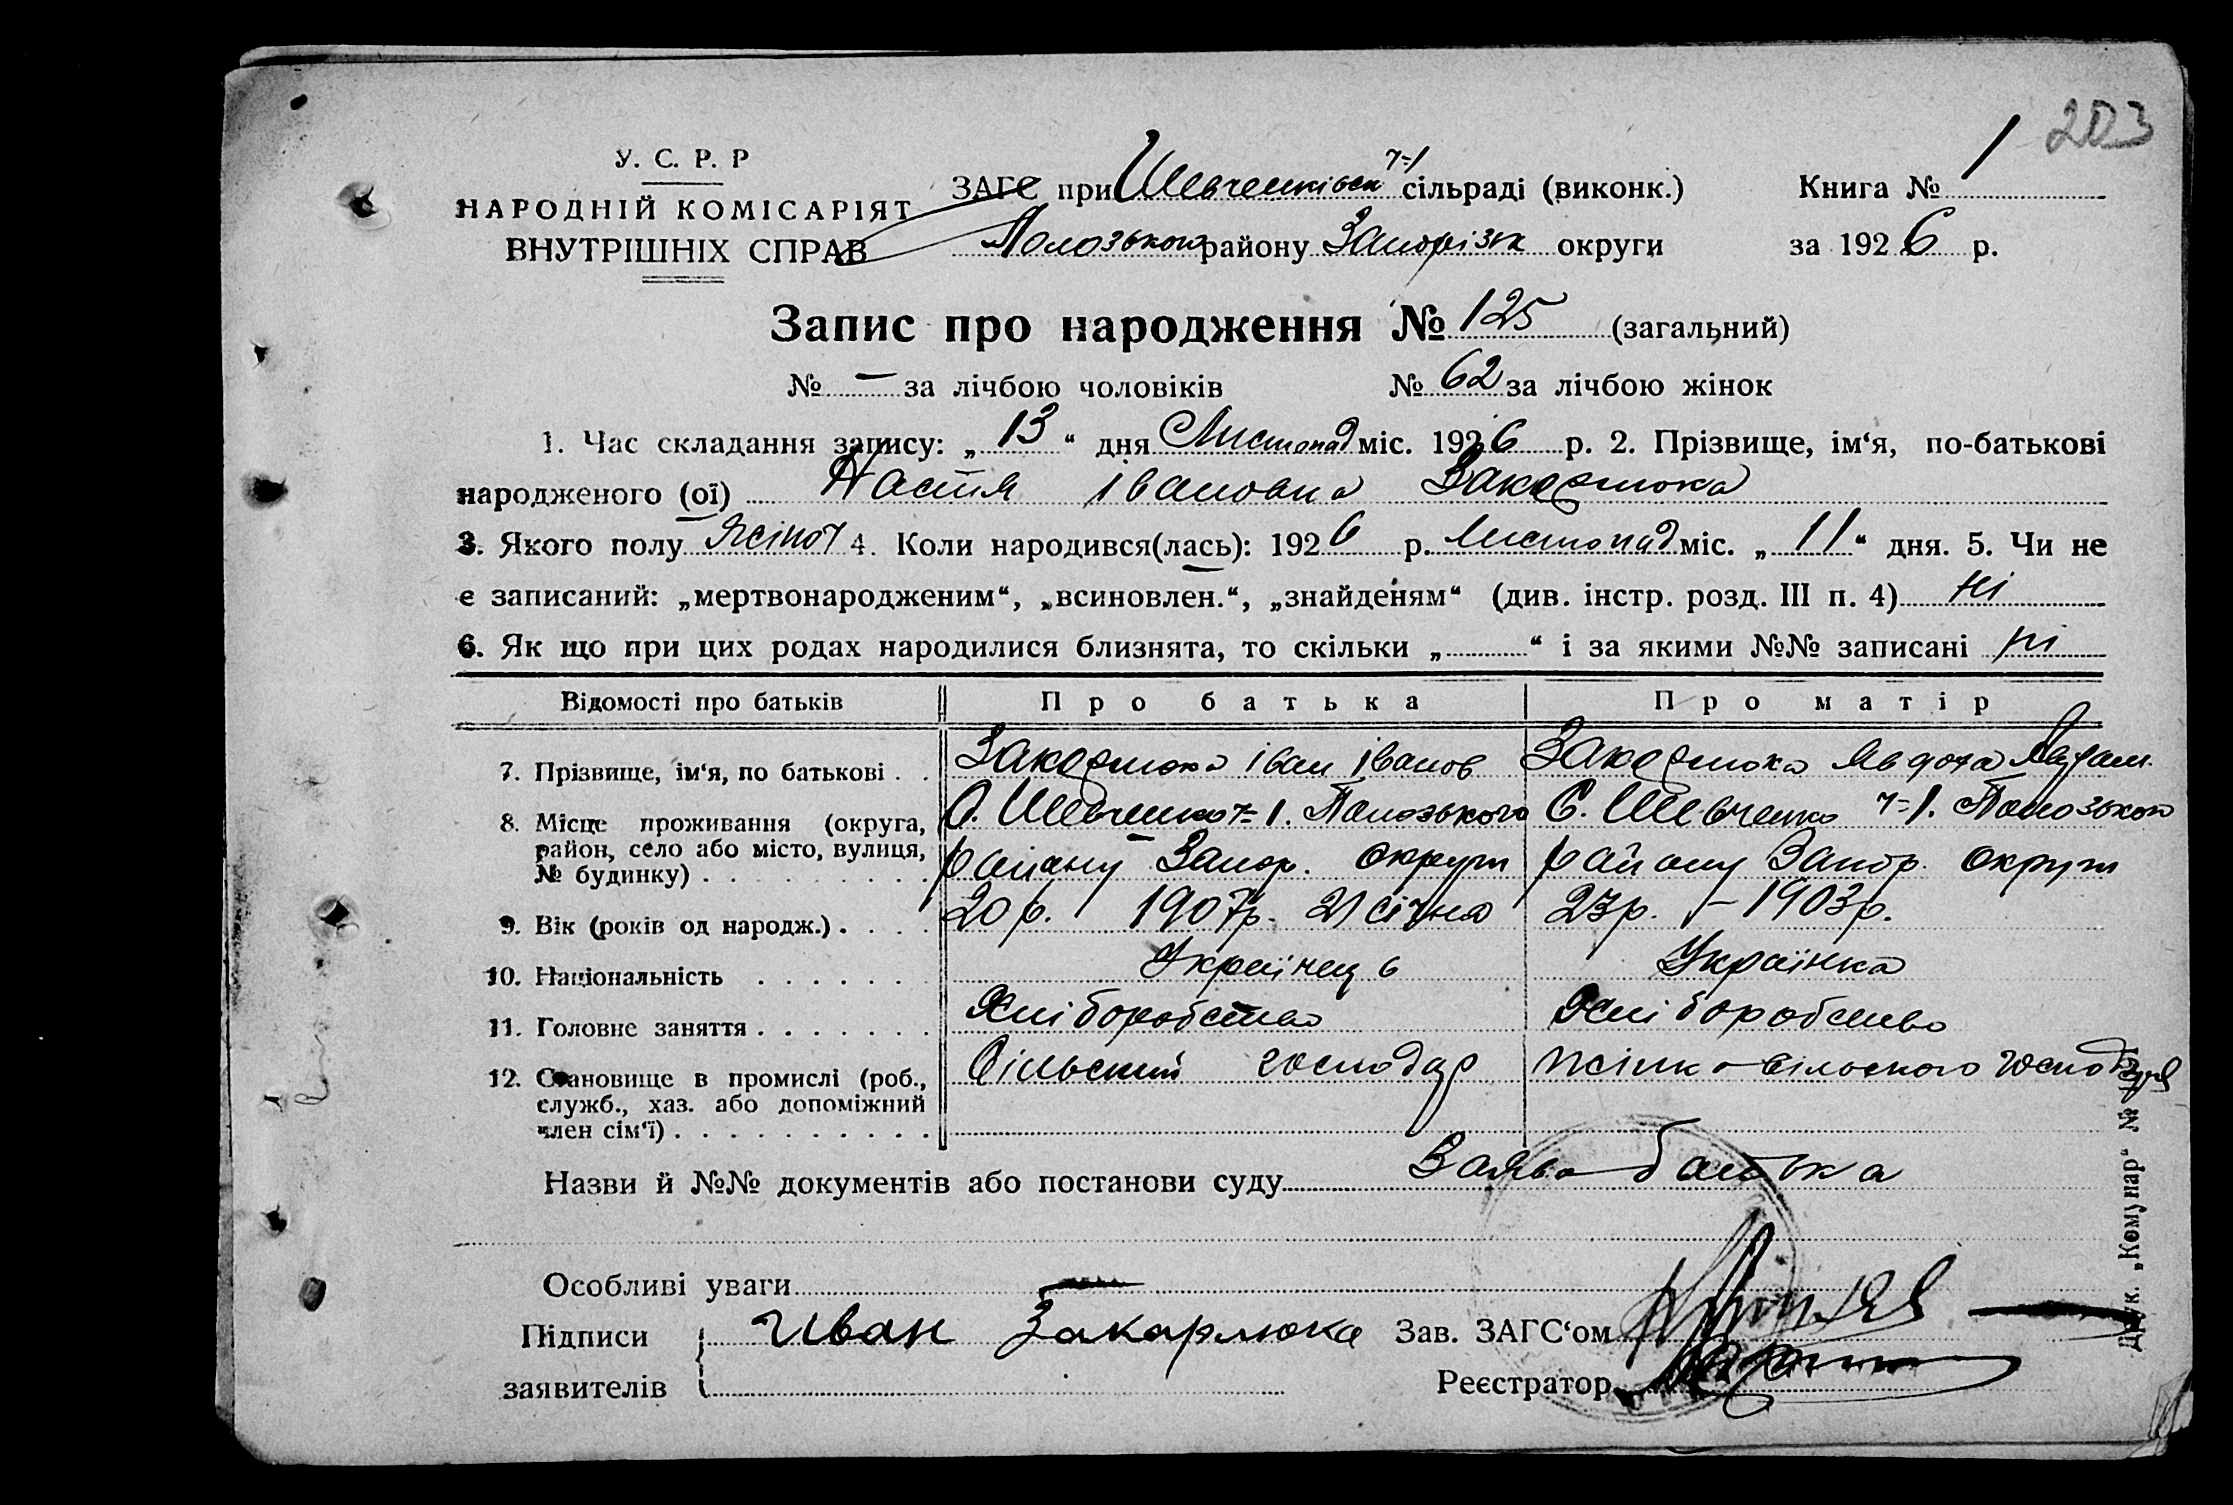 203
У. С. Р. Р
НАРОДНІЙ КОМІСАРІЯТ
ВНУТРІШНІХ СПРАВ
ЗАГС при Шевченківськ ч=1 сільраді (виконк.) Книга № 1
Пологзького району Запорізьк округи за 1926 р.
Запис про народження № 125 (загальний)
№ — за лічбою чоловіків № 62 за лічбою жінок
1. Час складання запису: „13“ дня Листопад міс. 1926 р. 2. Прізвище, ім‘я, по-батькові
народженого (ої) Настя івановна Закарлюка
3. Якого полу жіноч 4. Коли народився(лась): 1926 р. Листопад міс. „11“ дня. 5. Чи не
є записаний: „мертвонародженим“, „всиновлен.“, „знайденям“ (див. інстр. розд. III п. 4) ні
6. Як що при цих родах народилися близнята, то скільки „ “ і за якими №№ записані ні
Відомості про батьків Про батька Про матір
7. Прізвище, ім‘я, по батькові . . Закарлюка іван іванов Закарлюка Явдоха
8. Місце проживання (округа, район, село або місто, вулиця, № будинку) . С. Шевченко ч=1. Полозького району Запор. округи С. Шевченко ч=1. Полозького району Запор. округи
9. Вік (років од народж.) . 20 р. 1907р. 21 січня 23р. – 1903р.
10. Національність . Українець Українка
11. Головне заняття . Хліборобство Хліборобство
12. Становище в промислі (роб., служб., хаз. або допоміжний член сім‘ї) . Сільский господар жінка сільского господаря
Назви й №№ документів або постанови суду Заява батька
Особливі уваги
Підписи заявителів Иван Закарлюка Зав. ЗАГС‘ом
Реєстратор
Друк. „Комунар“ №